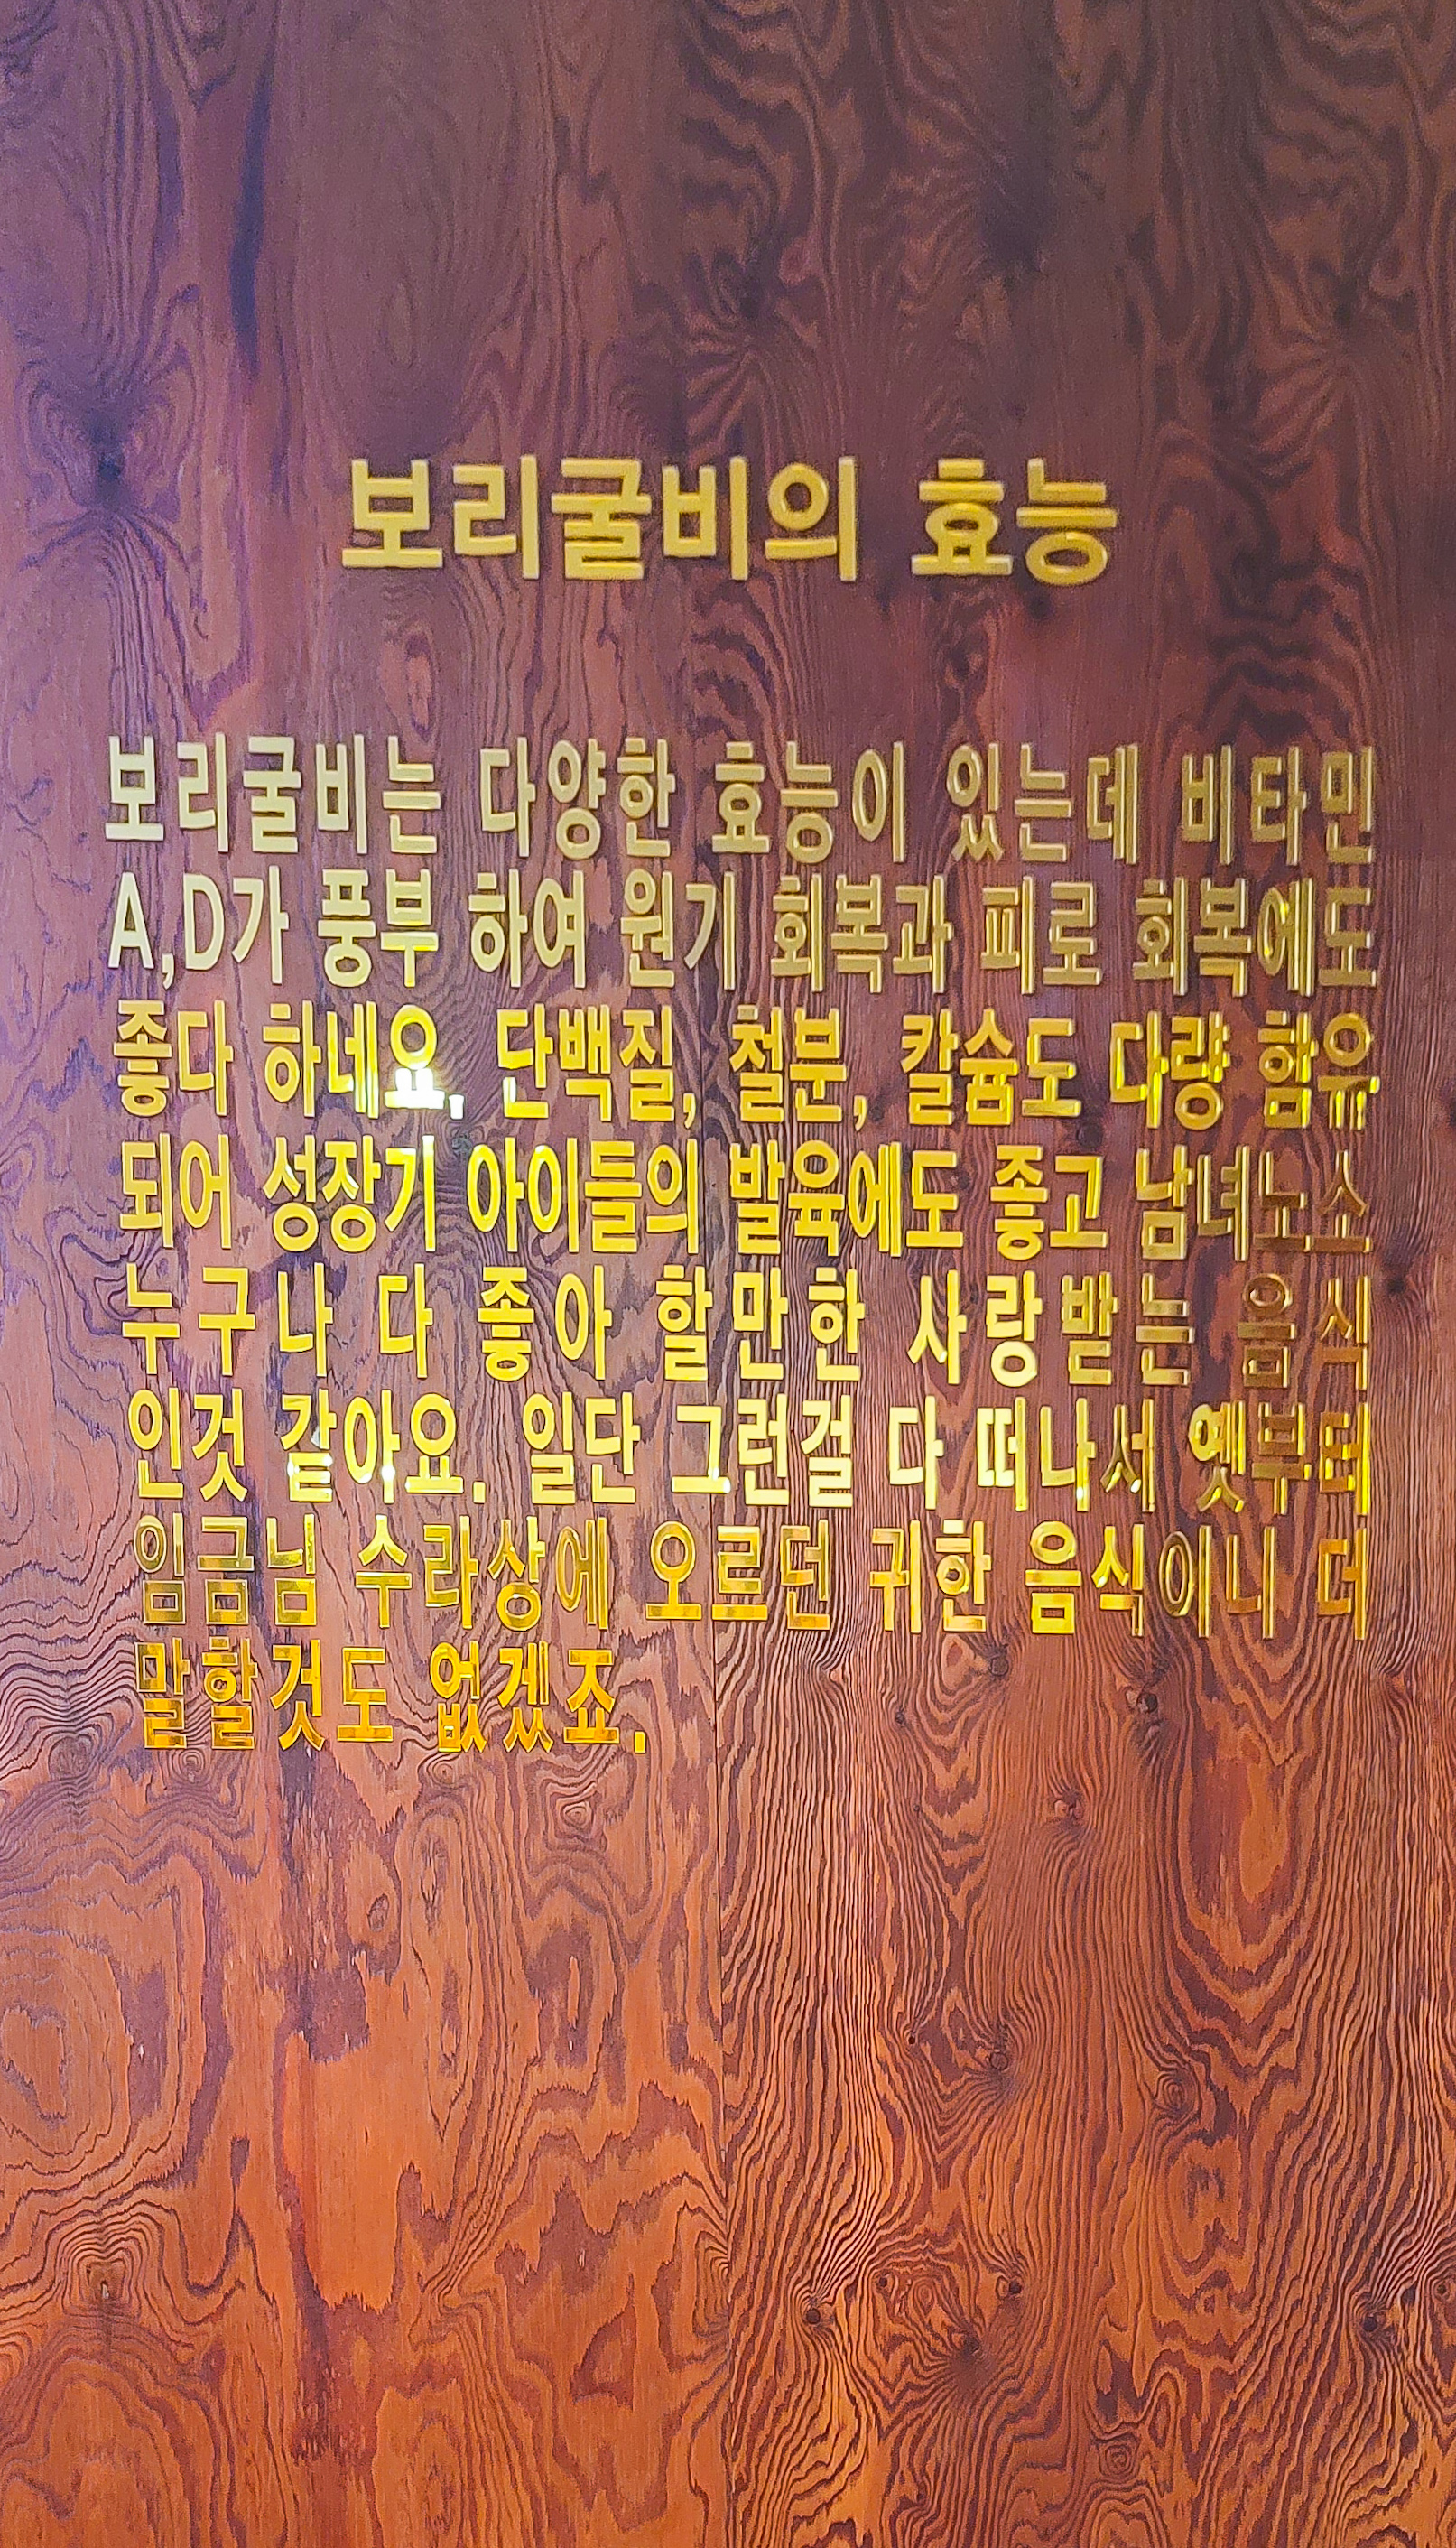 보리굴비의 효능
보리굴비는 다양한 효능이 있는데 비타민
A,D가 풍부 하여 원기 회복과 피로 회복에도
좋다 하네요. 단백질, 철분, 칼슘도 다량 함유
되어 성장기 아이들의 발육에도 좋고 남녀노소
누구나 다 좋아 할만한 사랑받는 음식
인것 같아요. 일단 그런걸 다 떠나서 옛부터
임금님 수라상에 오르던 귀한 음식이니 더
말할것도 없겠죠.